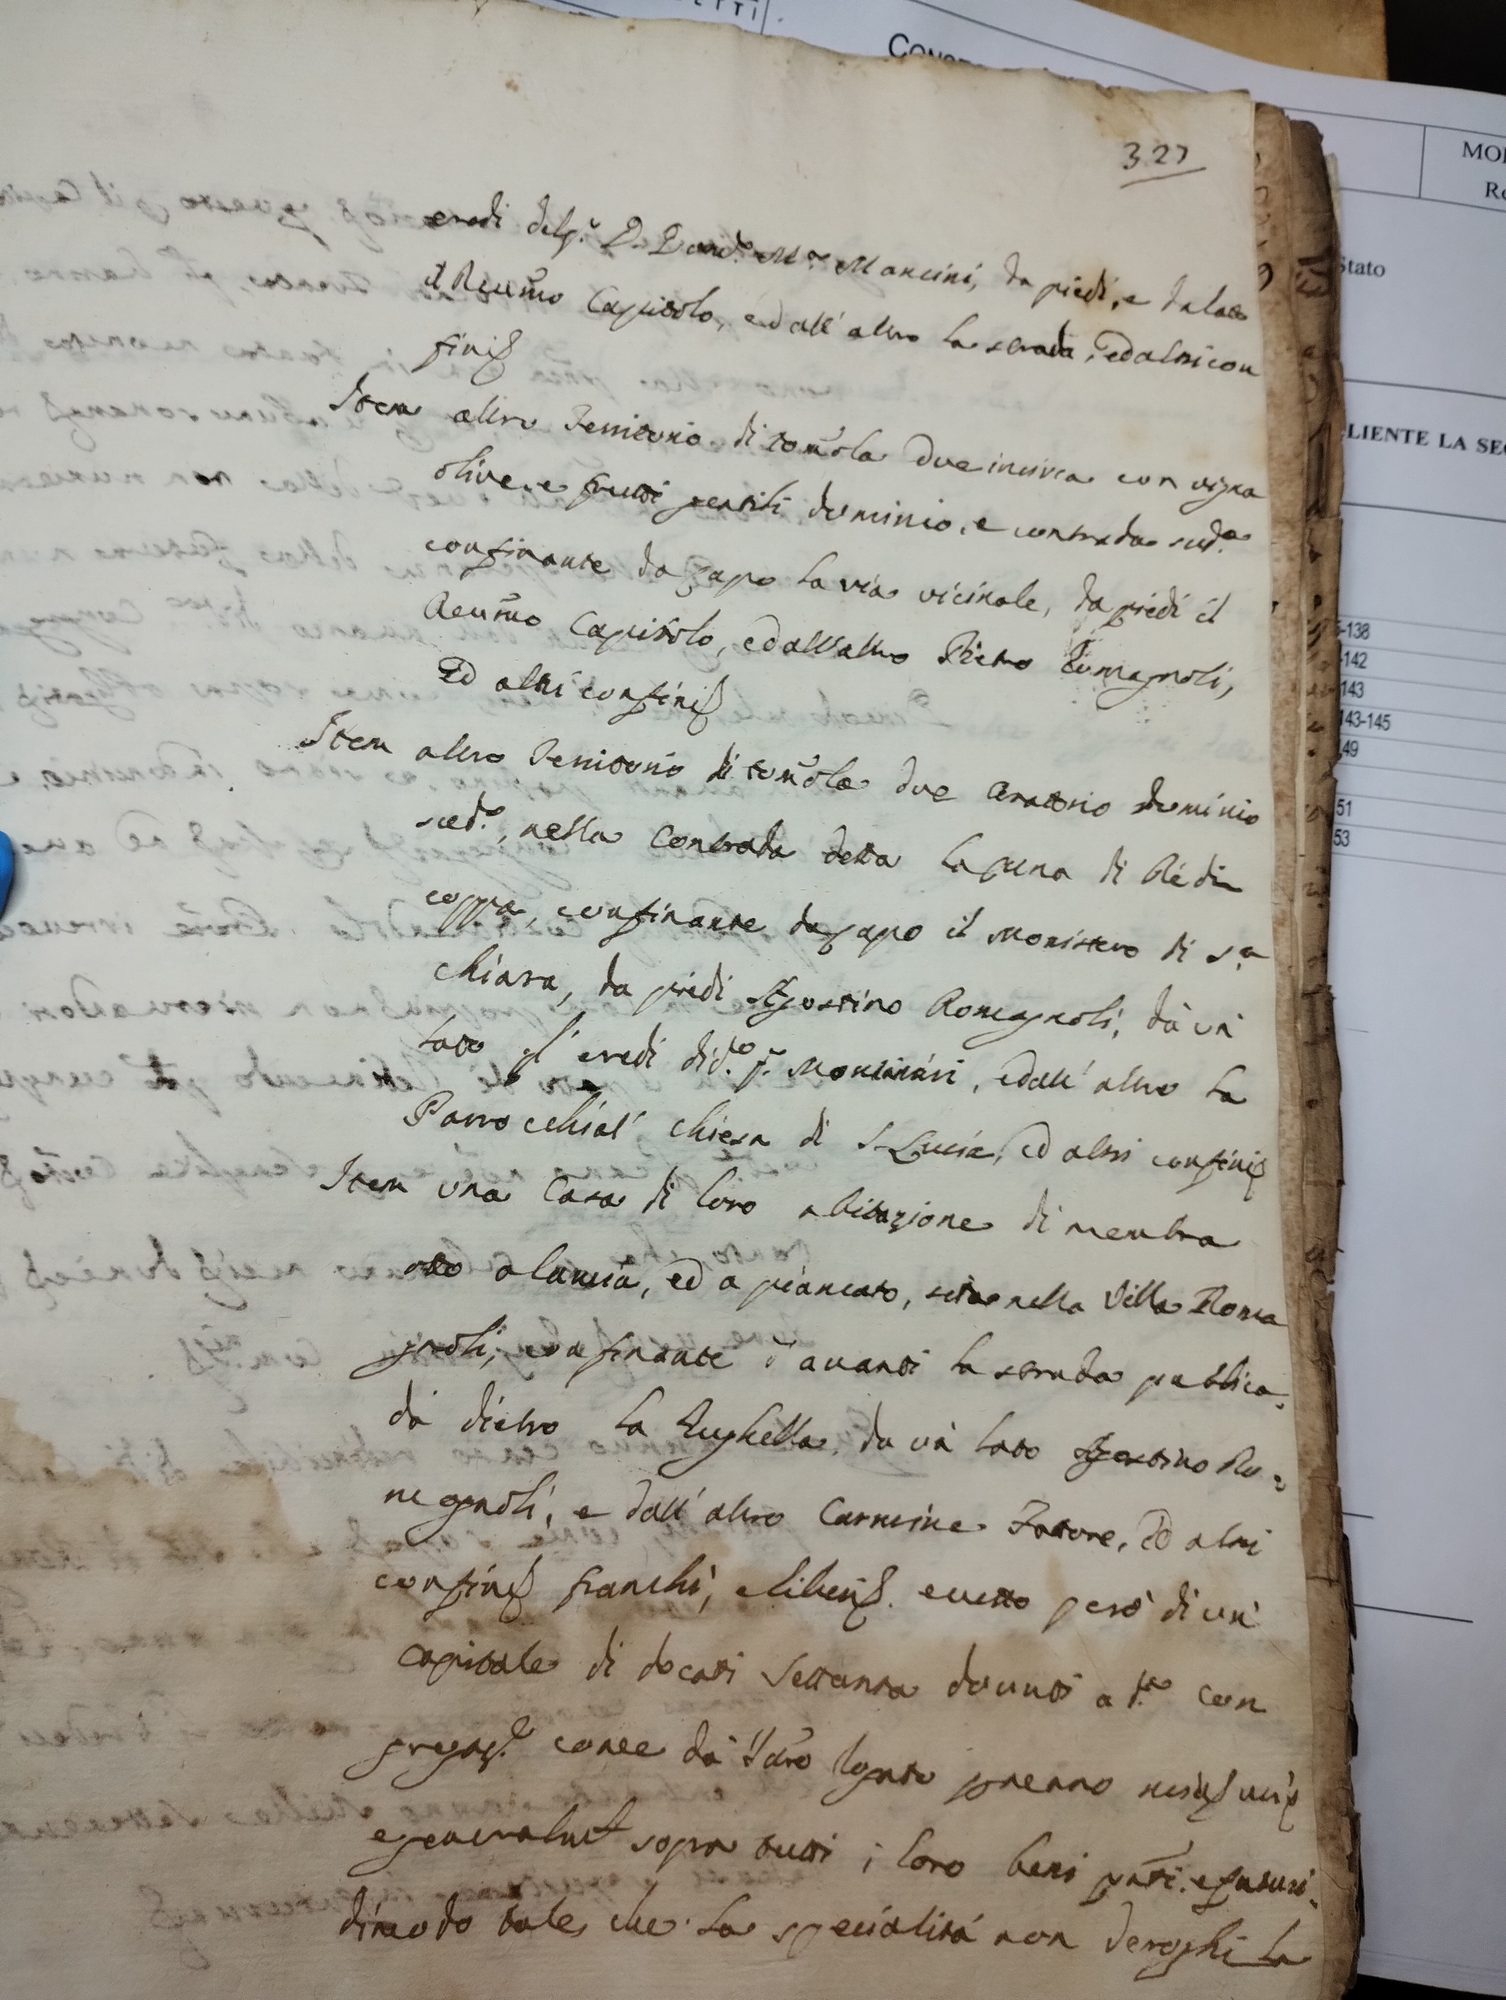 CONSE
MO
Re
Stato
LIENTE LA SE
-138
-142
143
143-145
49
51
53
327
eredi del q.m D. M.a Mancini, da piedi, e da lato
il Reumo Capitolo, ed all' altro la strada, ed altri con
fini
Item altro Territorio di tomola due incirca con vigna
olive, e frutti gentili dominio, e contrada sud.a
confinante da capo la via vicinale, da piedi il
Reumo Capitolo, ed all'altro Pietro Romagnoli,
Ed altri confini
Item altro Territorio di tomola due Aratorio dominio
sud.o, nella Contrada detta la di
coppa, confinante da capo il Monistero di S.a
Chiara, da piedi Agostino Romagnoli, da un'
lato gl' eredi di d.o q.m Montanari, ed all' altro la
Parrocchial' Chiesa di S. Lucia, ed altri confini
Item una Casa di loro abitazione di membra
otto a lamia, ed a piancato, sita nella Villa Roma
gnoli, confinante d'avanti la strada publica,
da dietro la Rughella, da un' lato Agostino Ro=
magnoli, e dall' altro Carmine Fattore, ed altri
confini franchi, e liberi. eccetto però di un'
capitale di docati settanta dovuti a d.a Con
gregaz.e come da
e generalm.t sopra tutti i loro beni p̃nti. e futuri.
dimodo tale, che la specialità non deroghi la